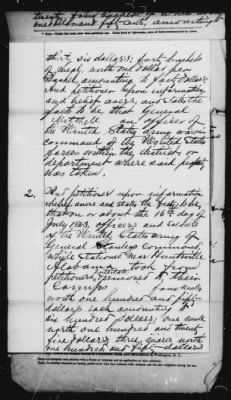 thirt six dollars; four bushels
of meal, worth one dollar per
Bushel, amounting to four dollars
And petitioner upon information
and belief avers, and states the
fact to be that General
Mitchell an officer of
the United States army was in
command of the United States
forces within the district, or
department where said property
was taken.
2. And petitioner upon information
belief avers and states the fact to be,
that on or about the 16th day of
July 1863, officers and soldiers
of the United States army of
General Stanleys Command,
while stationed near Huntsville
Alabama took from
petitioners, removed to their
Camps four mules
worth one hundred and fifty
dollars each amounting to
six hundred dollars; one mule
worth one hundred and twenty
five dollars; three mares worth
one hundred and fifty dollars